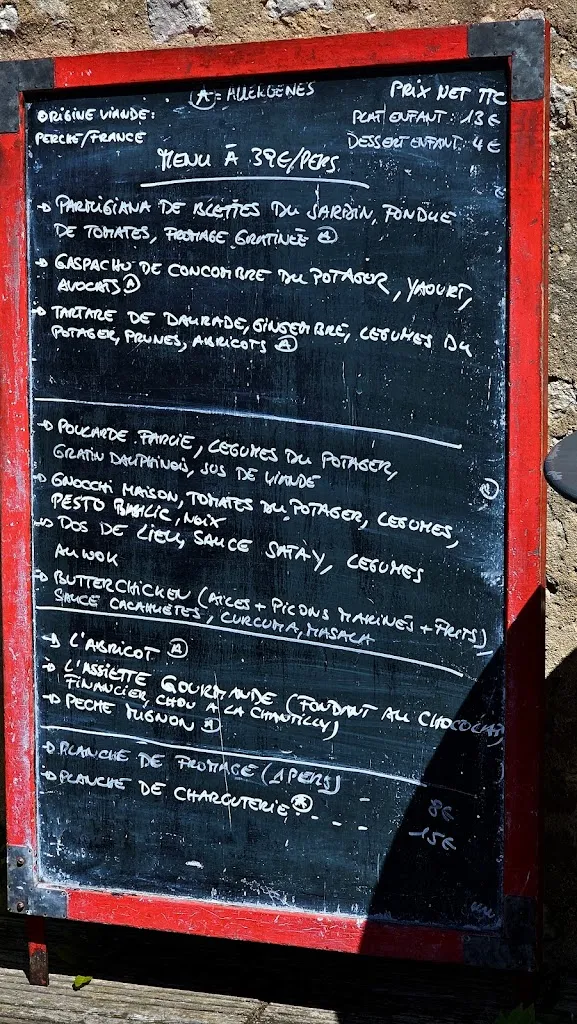 Ⓐ = ALLERGÈNES
PRIX NET TTC
ORIGINE VIANDE:
PLAT ENFANT: 13€
PERCHE/FRANCE
DESSERT ENFANT: 4€
MENU À 39€/PERS.
→ PARMIGIANA DE BLETTES DU JARDIN, FONDUE
DE TOMATES, FROMAGE GRATINÉE Ⓐ
→ GASPACHO DE CONCOMBRE DU POTAGER, YAOURT,
AVOCATS Ⓐ
→ TARTARE DE DAURADE, GINGEMBRE, LEGUMES DU
POTAGER, PRUNES, ABRICOTS Ⓐ
→ POULARDE FARCIE, LEGUMES DU POTAGER,
GRATIN DAUPHINOIS, JUS DE VIANDE
→ GNOCCHI MAISON, TOMATES DU POTAGER, LEGUMES,
PESTO BASILIC, NOIX
→ DOS DE LIEU, SAUCE SATAY, LEGUMES
AU WOK
→ BUTTER CHICKEN (AILES + PILONS MARINÉS + FRITS),
SAUCE CACAHUETES, CURCUMA, MASALA
→ L'ABRICOT Ⓐ
→ L'ASSIETTE GOURMANDE (FONDANT AU CHOCOLAT,
FINANCIER, CHOU A LA CHANTILLY)
→ PECHE MIGNON Ⓐ
→ PLANCHE DE FROMAGE (1 PERS) - 8€
→ PLANCHE DE CHARCUTERIE Ⓐ - - - 15€